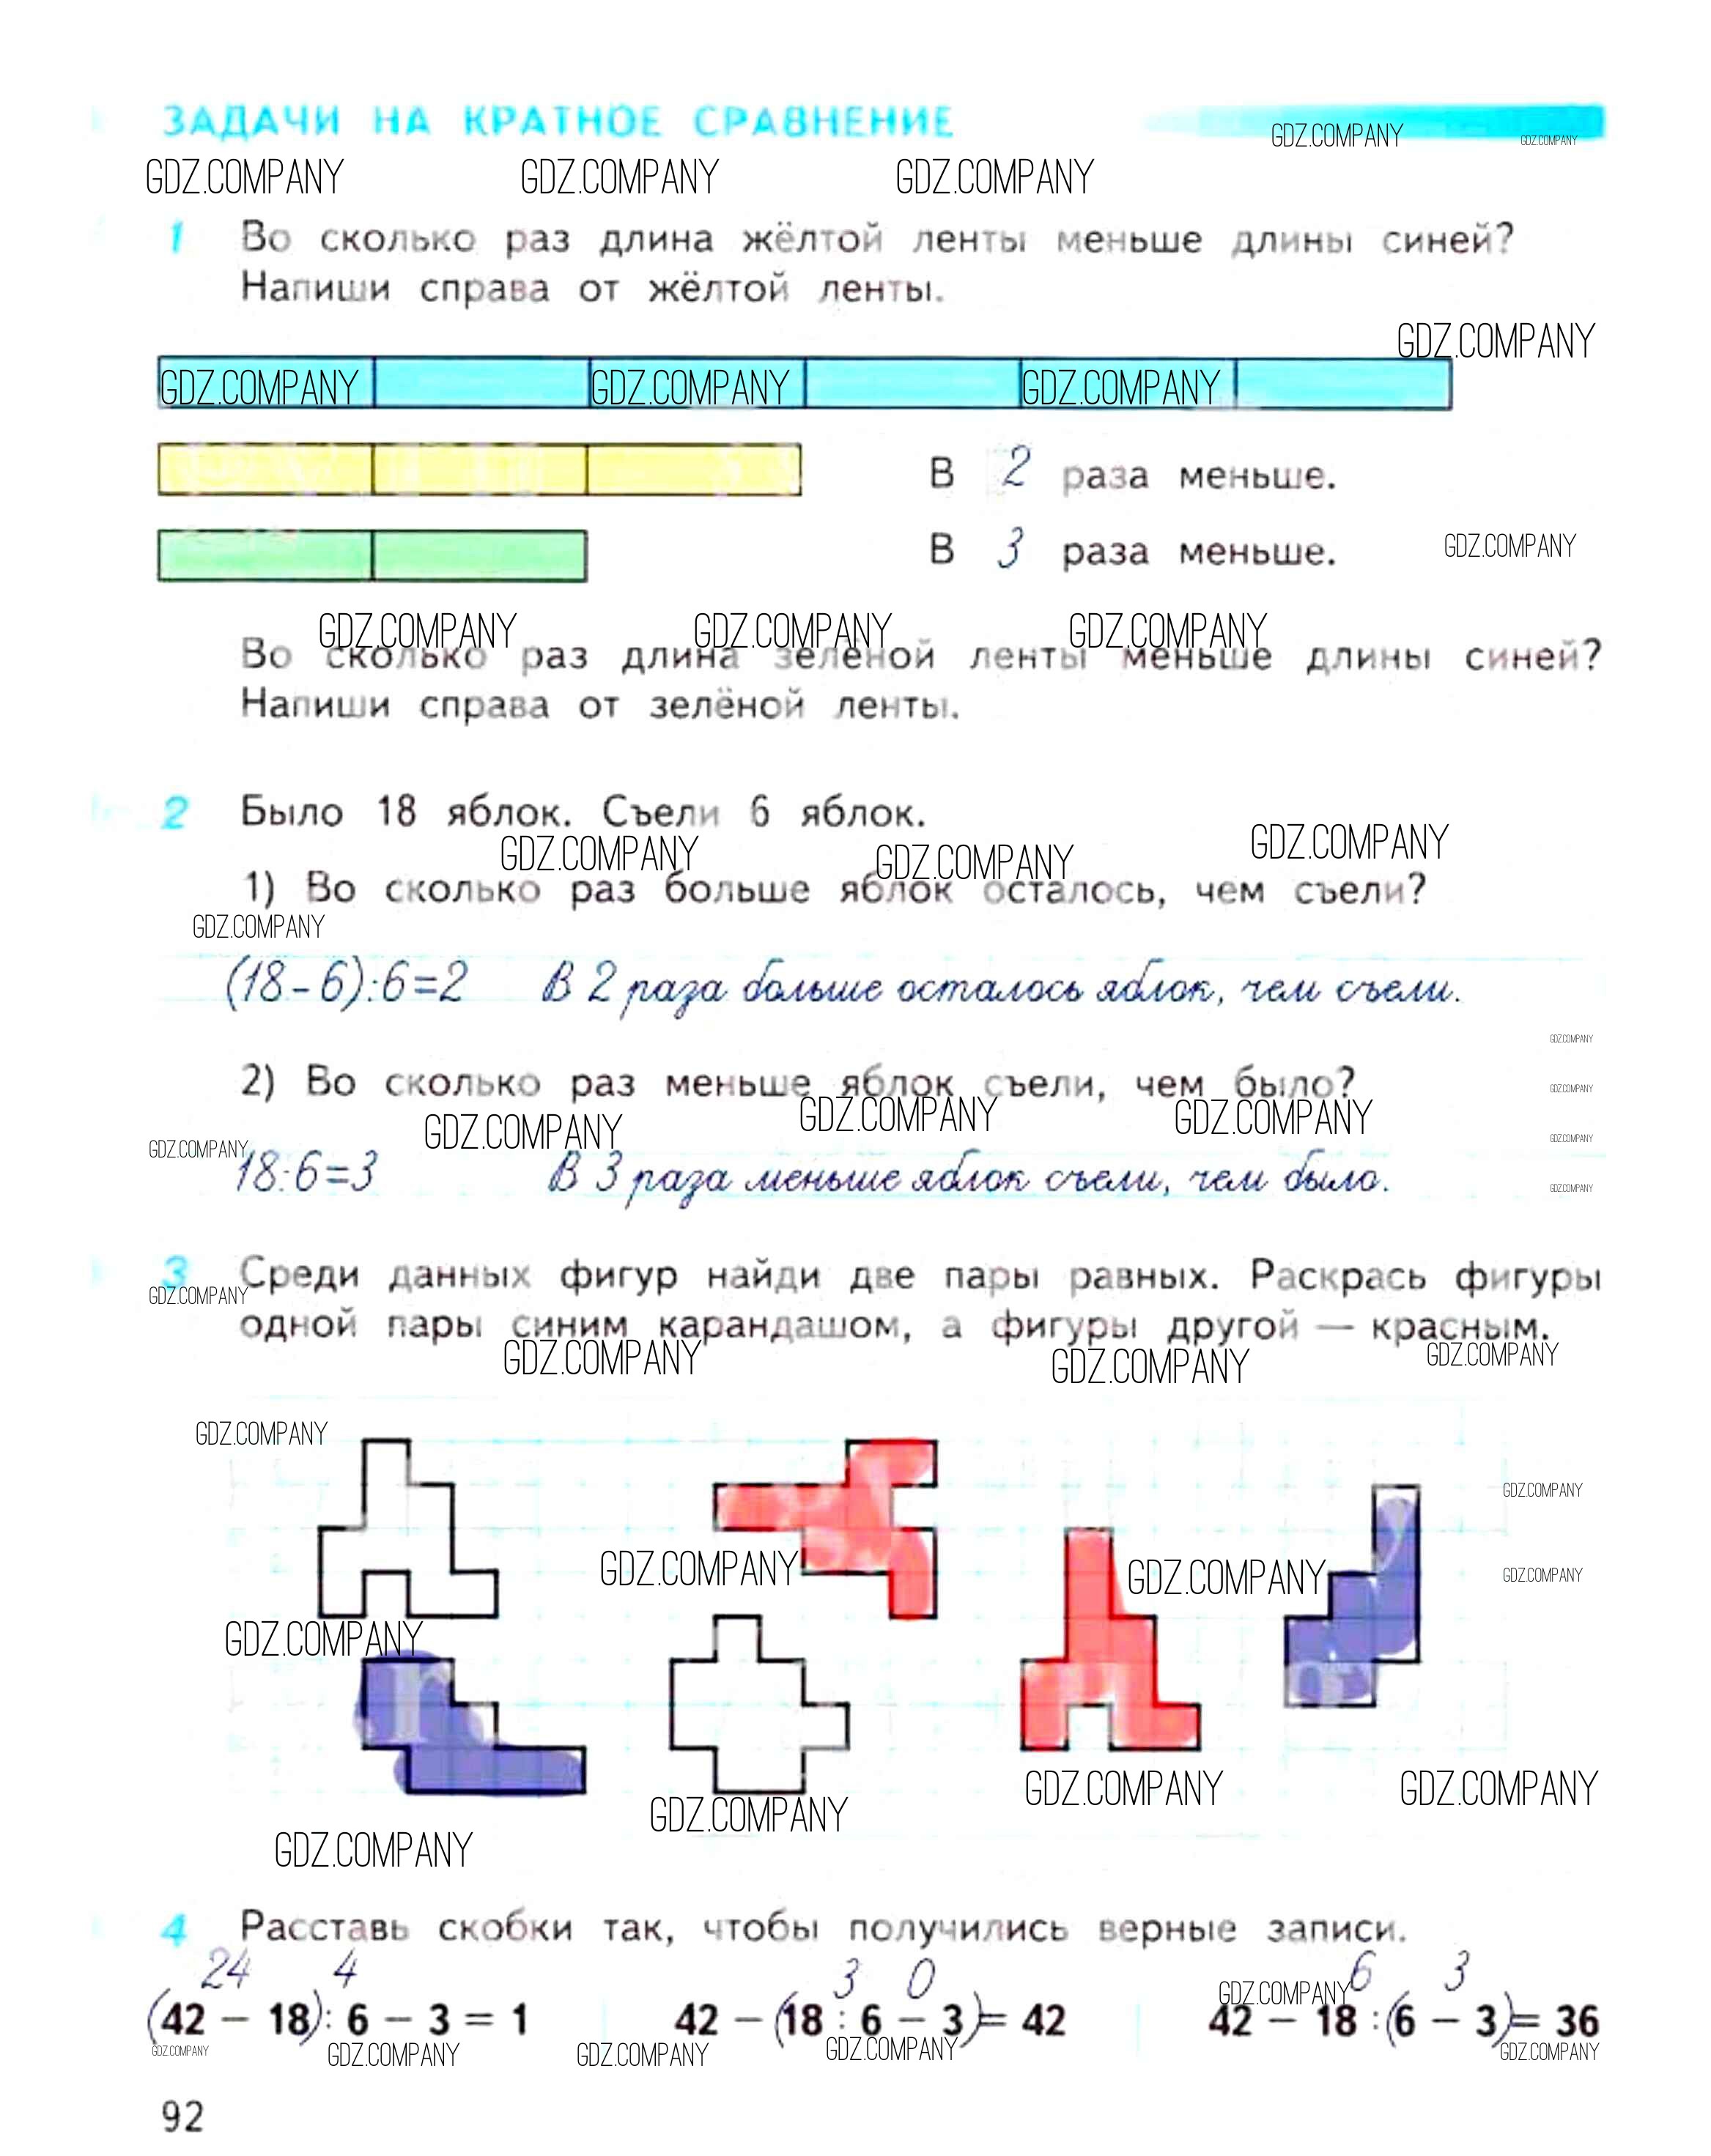 ЗАДАЧИ НА КРАТНОЕ СРАВНЕНИЕ
GDZ.COMPANY GDZ.COMPANY
GDZ.COMPANY GDZ.COMPANY GDZ.COMPANY
1 Во сколько раз длина жёлтой ленты меньше длины синей?
Напиши справа от жёлтой ленты.
GDZ.COMPANY
GDZ.COMPANY GDZ.COMPANY GDZ.COMPANY
В 2 раза меньше.
В 3 раза меньше.
GDZ.COMPANY
GDZ.COMPANY GDZ.COMPANY GDZ.COMPANY
Во сколько раз длина зелёной ленты меньше длины синей?
Напиши справа от зелёной ленты.
2 Было 18 яблок. Съели 6 яблок.
GDZ.COMPANY GDZ.COMPANY GDZ.COMPANY
1) Во сколько раз больше яблок осталось, чем съели?
GDZ.COMPANY
(18-6):6=2 В 2 раза больше осталось яблок, чем съели.
GDZ.COMPANY
2) Во сколько раз меньше яблок съели, чем было?
GDZ.COMPANY
GDZ.COMPANY GDZ.COMPANY GDZ.COMPANY
GDZ.COMPANY GDZ.COMPANY
18:6=3 В 3 раза меньше яблок съели, чем было.
GDZ.COMPANY
3 Среди данных фигур найди две пары равных. Раскрась фигуры
GDZ.COMPANY
одной пары синим карандашом, а фигуры другой — красным.
GDZ.COMPANY GDZ.COMPANY GDZ.COMPANY
GDZ.COMPANY
GDZ.COMPANY
GDZ.COMPANY GDZ.COMPANY GDZ.COMPANY
GDZ.COMPANY
GDZ.COMPANY GDZ.COMPANY
GDZ.COMPANY
GDZ.COMPANY
4 Расставь скобки так, чтобы получились верные записи.
24 4 3 0 6 3
GDZ.COMPANY
(42 − 18) : 6 − 3 = 1 42 − (18 : 6 − 3) = 42 42 − 18 : (6 − 3) = 36
GDZ.COMPANY GDZ.COMPANY GDZ.COMPANY GDZ.COMPANY GDZ.COMPANY
92